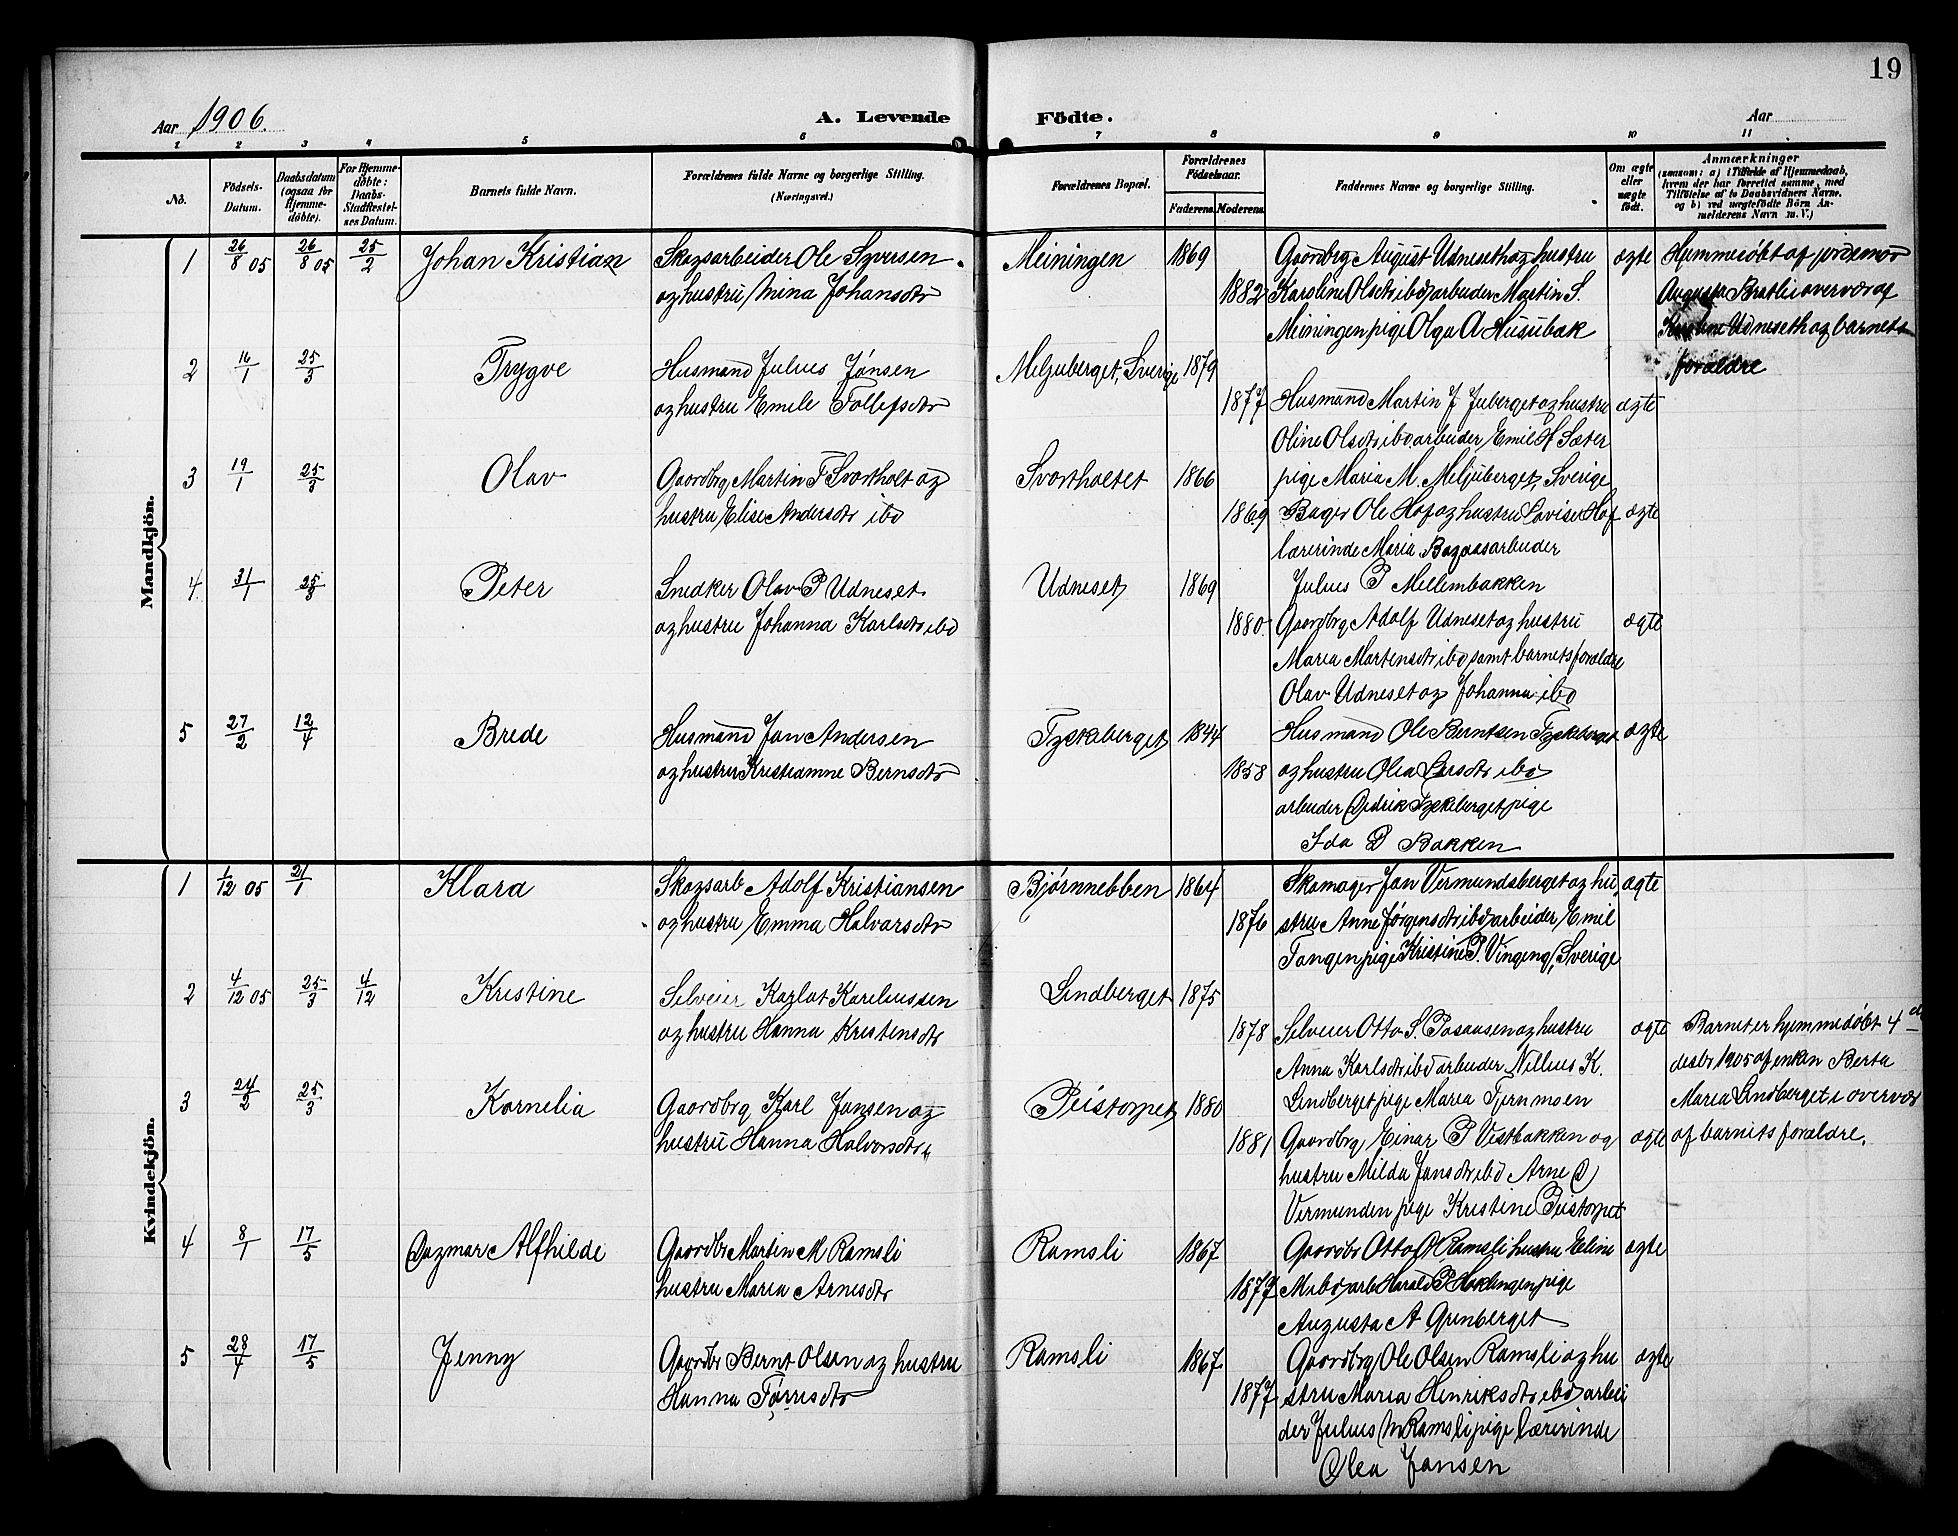 19
Aar 1906.
A. Levende Födte.
Aar
1 2 3 4 5 6 7 8 9 10 11
No.
Födsels-Datum.
Daabsdatum (ogsaa for Hjemme-döbte).
For Hjemme-döbte: Daabs-Stadfæstel-ses Datum.
Barnets fulde Navn.
Forældrenes fulde Navne og borgerlige Stilling. (Næringsvei.)
Forældrenes Bopæl.
Forældrenes Födselsaar.
Faderens. Moderens.
Faddernes Navne og borgerlige Stilling.
Om ægte eller uægte födt.
Anmærkninger
(saasom: a) i Tilfælde af Hjemmedaab, hvem der har forrettet samme, med Tilföielse af to Daabsvidners Navne. og b) ved uægtefödte Börn An-melderens Navn m. V.)
Mandkjön.
1 26/8 05 26/8 05 25/2 Johan Kristian Skogsarbeider Ole Syversen Meiningen 1869 Gaardbrg August Udneseth og hustru ægte Hjemmedøbt af jordemor
og hustru Mina Johansdtr 1882 Karoline Olsdtr ibd arbeider Martin S. Augusta Bratli i overvær af
Meiningen pige Olga A Husubak Karoline Udneseth og barnets
2 16/1 25/3 Trygve Husmand Julius Jonsen Meljuberget, Sverige 1879 forældre
og hustru Emile Tollefsdtr 1877 Husmand Martin J Juberget og hustru ægte
Oline Olsdtr ibd arbeider Emil H Sæter
3 19/1 25/3 Olav Gaardbrg Martin F Svartholt og Svartholtet 1866 pige Maria M. Meljuberget, Sverige
hustru Elise Andersdtr ibd 1869 Bager Ole Hof og hustru Lovise Hof ægte
lærerinde Maria arbeider
4 31/1 25/3 Peter Snedker Olav P Udneset Udneset 1869 Julius P Mellembakken
og hustru Johanna Karlsdtr ibd 1880 Gaardbrg Adolf Udneset og hustru ægte
Maria Martensdtr ibd samt barnets forældre
Olav Udneset og Johanna ibd
5 27/2 12/4 Brede Husmand Jan Andersen Tyskeberget 1844 Husmand Ole Berntsen Tyskeberget ægte
og hustru Kristianne Bernsdtr 1858 og hustru Olea Larsdtr ibd
arbeider Didrik Tyskeberget pige
Ida D Bakken
Kvindekjön.
1 1/12 05 21/1 Klara Skogsarb Adolf Kristiansen Bjørnnebben 1864 Skomager Jan Vermundsberget og hu ægte
og hustru Emma Halvarsdtr 1876 stru Anne Jørgensdtr ibd arbeider Emil
Tangen pige Kristine P. Vingeng, Sverige
2 4/12 05 25/3 4/12 Kristine Selveier Karlot Kareliussen Lindberget 1875
og hustru Hanna Kristensdtr 1878 Selveier Otto S. og hustru ægte Barnet er hjemmedøbt 4de
Anna Karlsdtr ibd arbeider Nillius K. desbr 1905 af enken Berta
3 24/2 25/3 Kornelia Gaardbrg Karl Jansen og Peistorpet 1880 Lindberget pige Maria Tjernmoen Maria Lindberget i overvær
hustru Hanna Halvorsdtr 1881 Gaardbrg Einar P Vestbakken og ægte af barnets forældre.
hustru Milda Jansdtr ibd Arne O
Vermunden pige Kristine Peistorpet
4 8/1 17/5 Dagmar Alfhilde Gaardbr Martin M Ramsli Ramsli 1867 Gaardbr Otto O Ramsli hustru Eline ægte
hustru Maria Arnesdtr 1877 M ibd arb Harald P pige
Augusta A Grønberget
5 28/4 17/5 Jenny Gaardbr Bernt Olsen og hustru Ramsli 1867 Gaardbrg Ole Olsen Ramsli og hu ægte
Hanna Tørrisdtr 1877 stru Maria Henriksdtr ibd arbei
der Julius M Ramsli pige lærerinde
Olea Jansen